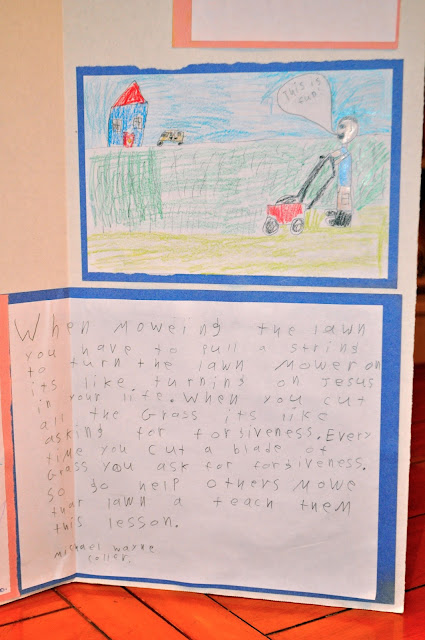 This is
fun!
When moweing the lawn
you have to pull a string
to turn the lawn mower on
its like turning on Jesus
in your life. When you cut
all the Grass its like
asking for forgiveness. Every
time you cut a blade of
Grass you ask for forgiveness.
So go help others mowe
thar lawn a teach them
this lesson.
Michael Wayne
Coller.